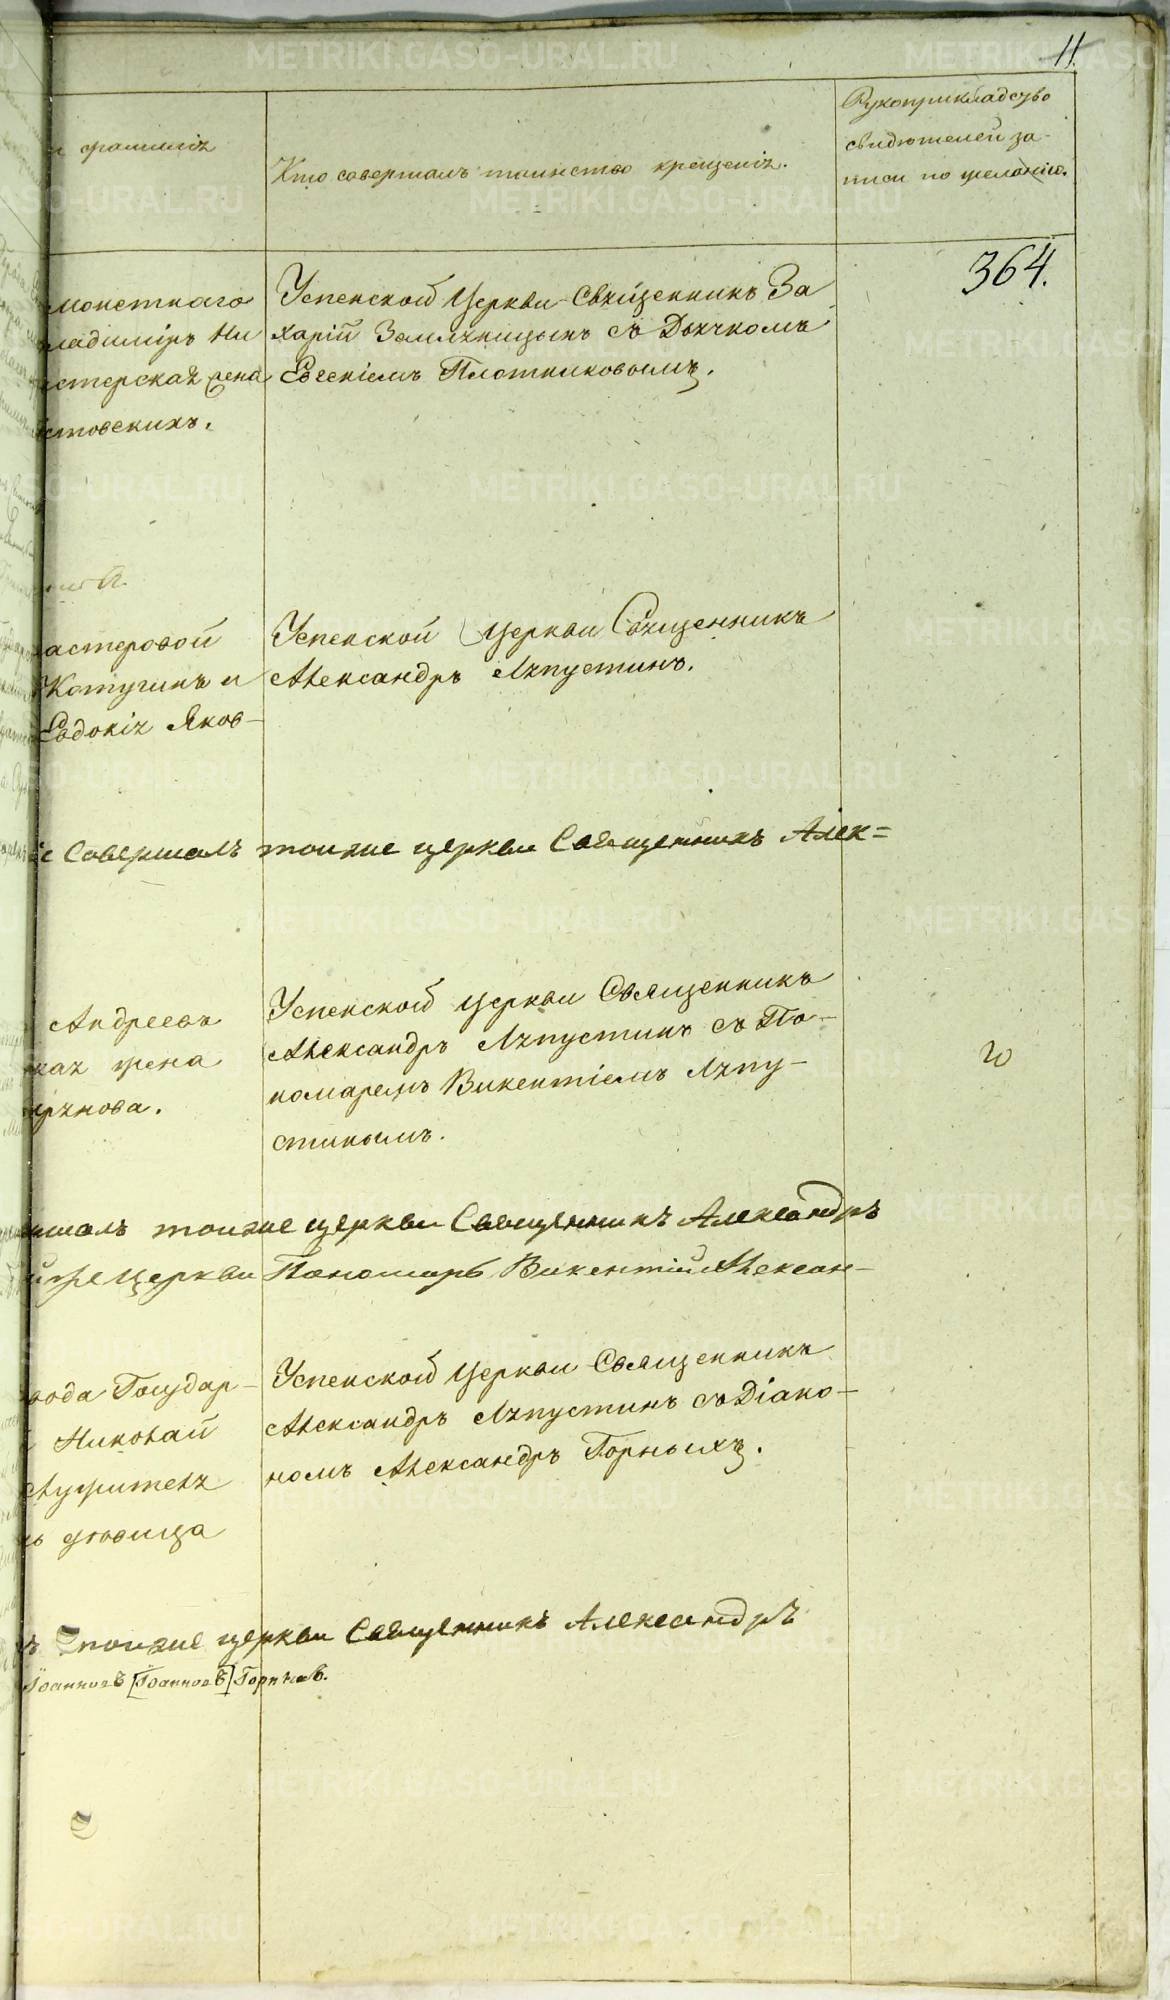 11.
и фамилія
Кто совершалъ таинство крещенія.
Рукоприкладство
свидѣтелей за-
писи по желанію.
364.
монетнаго
ладиміръ Ни
стерская жена
стовскихъ.
Успенской Церкви Священникъ За
харій Земляницынъ съ Дьячкомъ
Евгеніемъ Плотниковымъ.
астеровой
Котугинъ и
Евдокія Яков-
Успенской Церкви Священникъ
Александръ Ляпустинъ.
Совершалъ тоиже церкви Священникъ Алек=
Андреевъ
кая жена
Успенской Церкви Священникъ
Александръ Ляпустинъ съ По-
номаремъ Викентіемъ Ляпу-
стинымъ.
шалъ тоиже церкви Священникъ Александръ
йже Церкви Пономарь Викентій Алексан-
вода Государ-
Николай
ь дѣвица
Успенской Церкви Священникъ
Александръ Ляпустинъ съ Діако-
номъ Александръ Горныхъ.
ъ тоиже церкви Священникъ Александръ
Іоанновъ [Іоанновъ]
METRIKI.GASO-URAL.RU